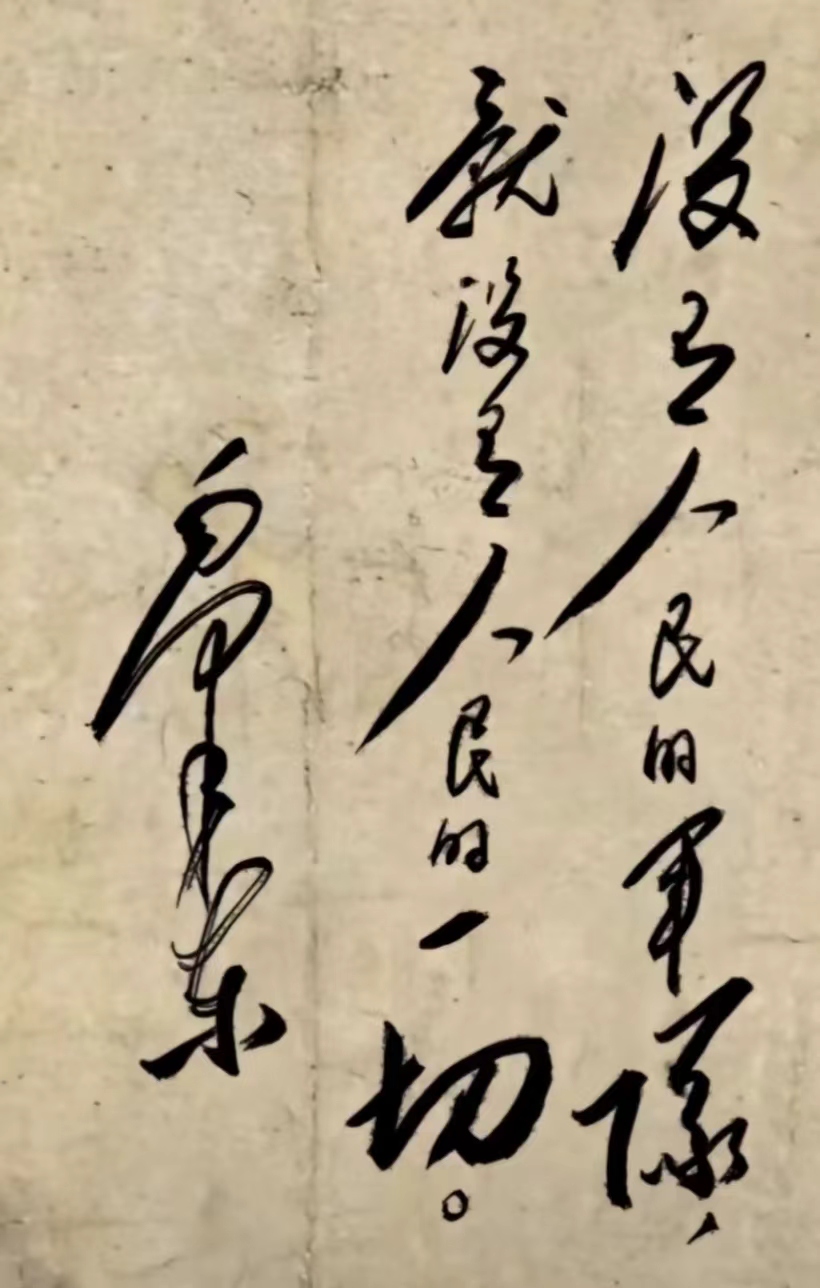 没有人民的军隊，
就没有人民的一切。
毛泽东